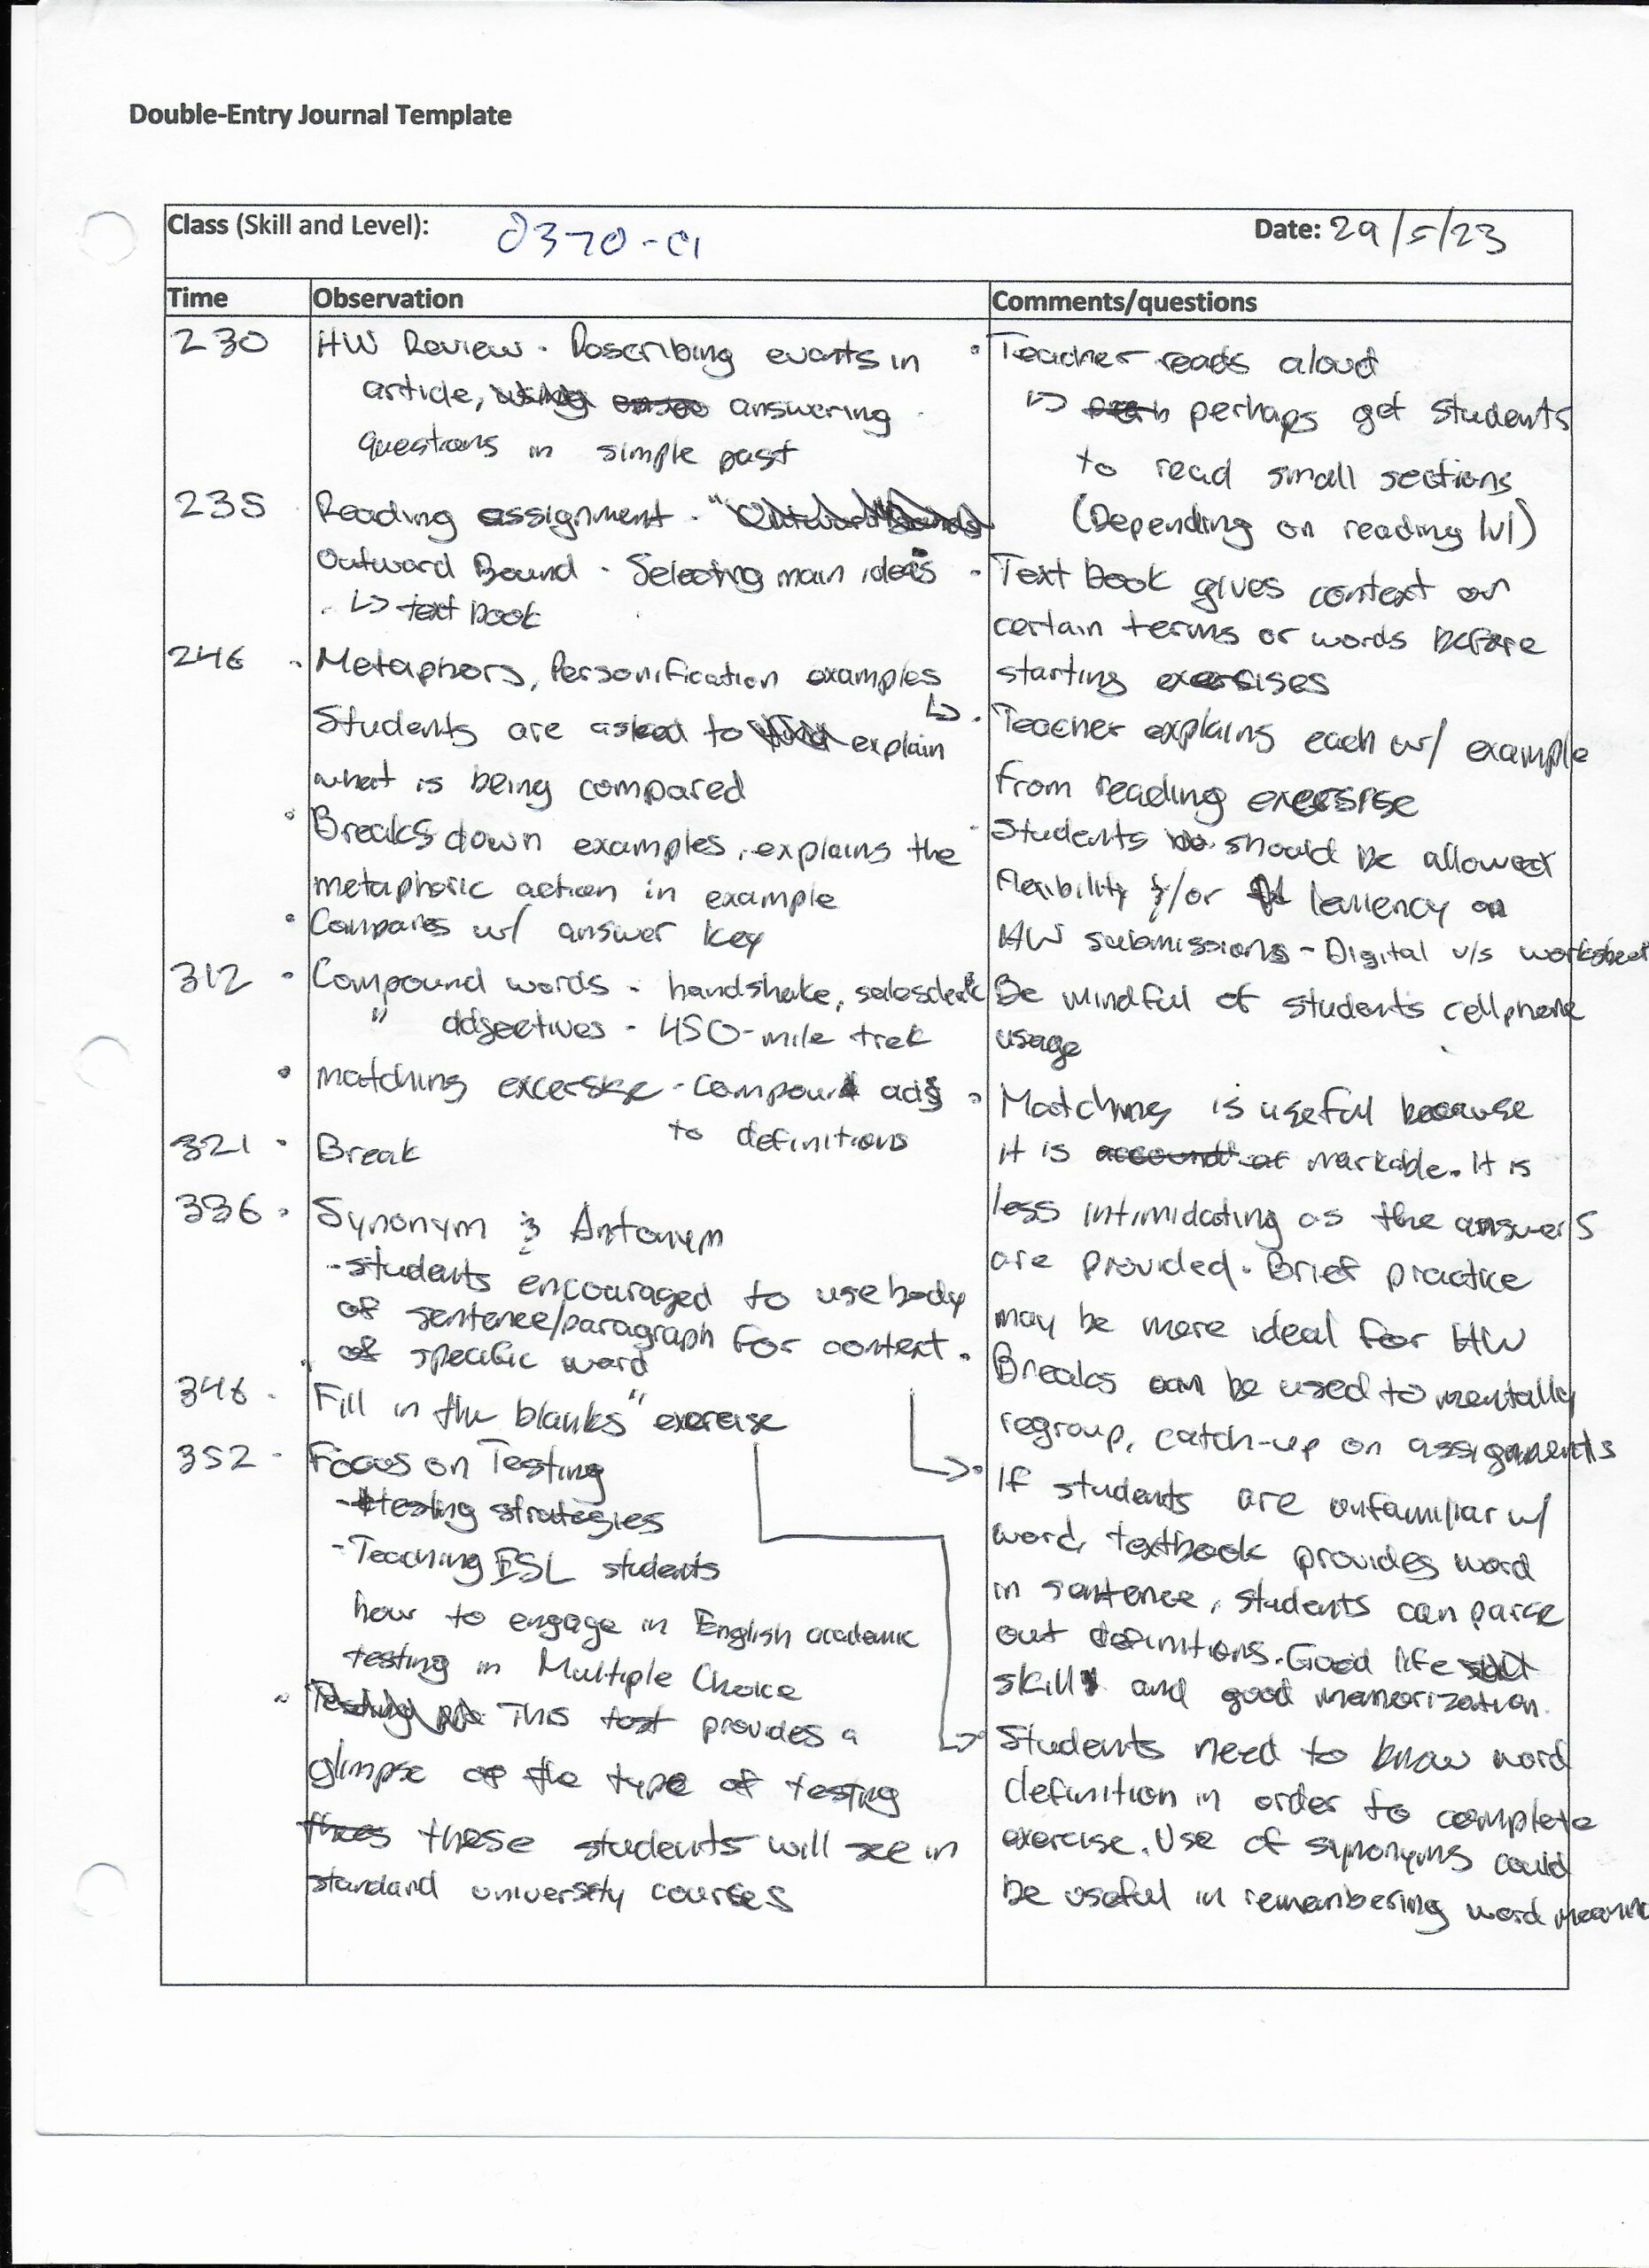 Double-Entry Journal Template
Class (Skill and Level): 0370-C1
Date: 29/5/23
Time
Observation
Comments/questions
230
HW Review. Describing events in
article, answering
questions in simple past
235
Reading assignment.
Outward Bound - Selecting main ideas
↳ text book
246
Metaphors, Personification examples
Students are asked to explain
what is being compared
Breaks down examples, explains the
metaphoric action in example
Compares w/ answer key
312
Compound words - handshake, salesclerk
" adjectives - 450-mile trek
matching excersise - compound adjs
to definitions
321
Break
336
Synonym & Antonym
-students encouraged to use body
of sentence/paragraph for context
of specific word
346
"Fill in the blanks" exercise
352
Focus on Testing
-testing strategies
-Teaching ESL students
how to engage in English academic
testing in Multiple Choice
This test provides a
glimpse of the type of testing
these students will see in
standard university courses
Teacher reads aloud
↳ perhaps get students
to read small sections
(Depending on reading lvl)
Text book gives context on
certain terms or words before
starting exersises
Teacher explains each w/ example
from reading
Students should be allowed
flexibility &/or leniency on
HW submissions - Digital v/s worksheet
Be mindful of students cellphone
usage
Matching is useful because
it is markable. It is
less intimidating as the answers
are provided. Brief practice
may be more ideal for HW
Breaks can be used to mentally
regroup, catch-up on assignments
If students are unfamiliar w/
word, textbook provides word
in sentence, students can parse
out definitions. Good life
skill and good memorization.
Students need to know word
definition in order to complete
exercise. Use of synonyms could
be useful in remembering word meaning